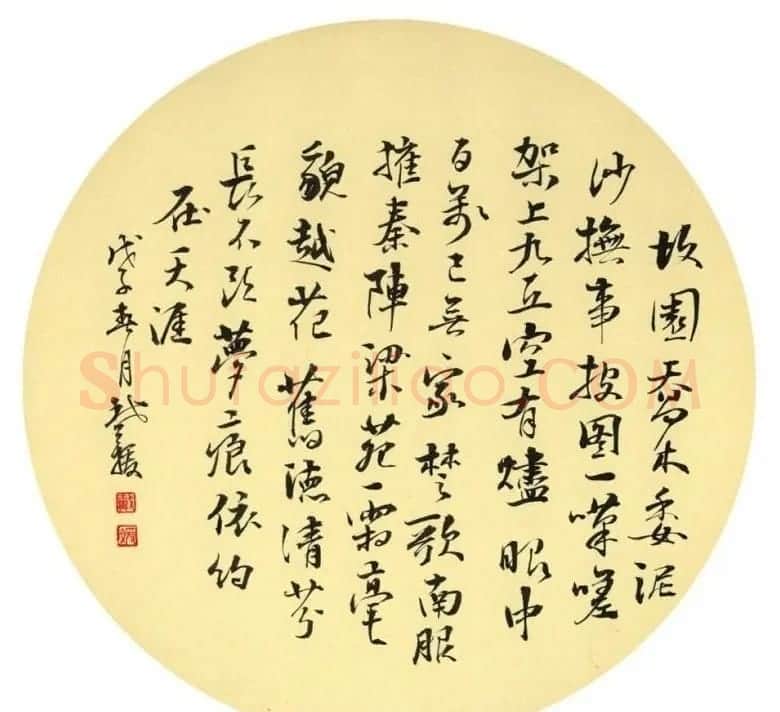 故園喬木委泥
沙撫事按圖一嘆嗟
架上九丘空有燼眼中
百萬已無家楚歌南服
摧秦陣梁苑霜毫
貌越花舊德清芬
長不改夢痕依約
在天涯
戊子春月
Shufaziliao.COM